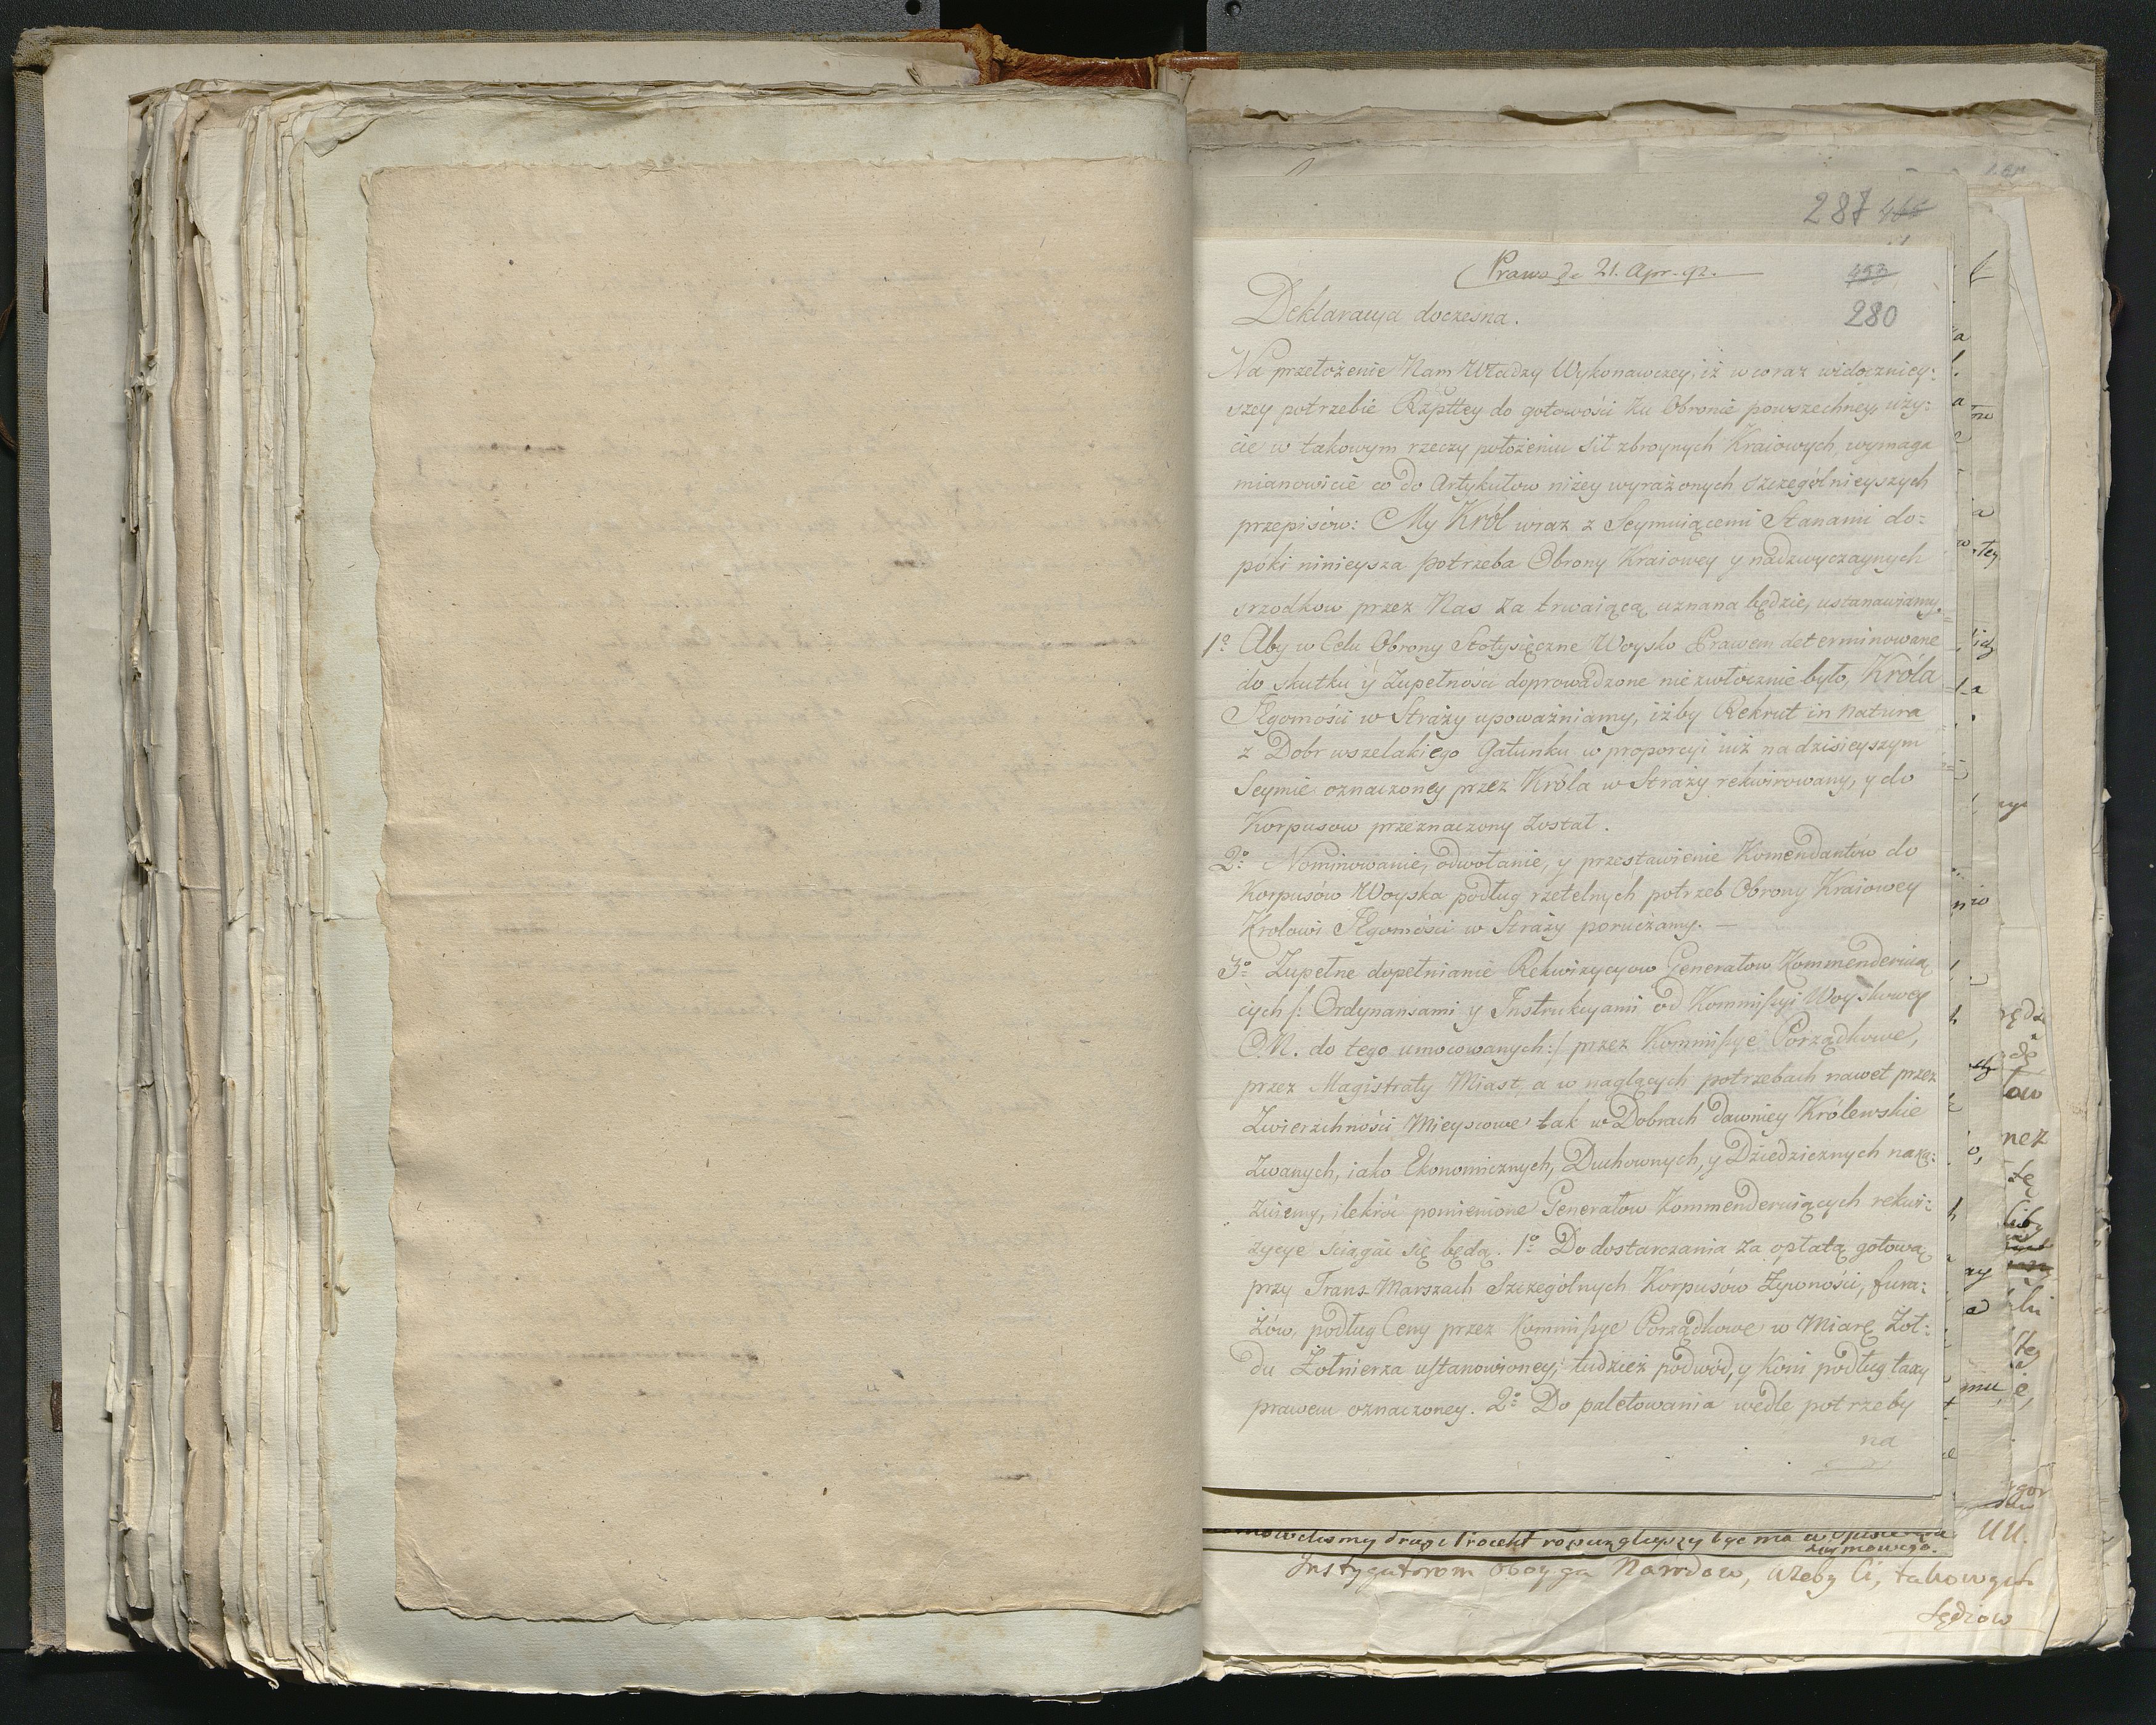 287 466
Prawo de 21. Apr. 92.
453
280
Deklaracya doczesna.
Na przełożenie Nam Władzy Wykonawczey, iż w coraz widoczniey:
szey potrzebie Rzpttey do gotowości ku Obronie powszechney, uży:
cie w takowym rzeczy położeniu sił zbroynych Kraiowych, wymaga
mianowicie co do Artykułow niżey wyrażonych szczegolnieyszych
przepisów: My Król wraz z Seymuiącemi Stanami do=
póki ninieysza potrzeba Obrony Kraiowey y nadzwyczaynych
srzodkow przez Nas za trwaiącą uznana będzie, ustanawiamy.
1º Aby w Celu Obrony Stotysięczne Woysko Prawem determinowane
do skutku y Zupełności doprowadzone niezwłocznie było, Króla
Jegomości w Straży upoważniamy, iżby Rekrut in natura
z Dobr wszelakiego Gatunku w proporcyi iuż na dzisieyszym
Seymie oznaczoney przez Króla w Straży rekwirowany, y do
Korpusow przeznaczony został.
2º Nominowanie, odwołanie, y przestawienie Komendantów do
Korpusów Woyska podług rzetelnych potrzeb Obrony Kraiowey
Krolowi Jegomości w Straży poruczamy. —
3º Zupełne dopełnianie Rekwizycyow Generałow Kommenderuią
cych /: Ordynansami y Instrukcyami od Kommissyi Woyskowey
O. N. do tego umocowanych :/ przez Kommissye Porządkowe,
przez Magistraty Miast, a w naglących potrzebach nawet przez
Zwierzchności Mieyscowe tak w Dobrach dawniey Królewskie
Zwanych, iako Ekonomicznych, Duchownych, y Dziedzicznych naka:
zuiemy, ilekroć pomienione Generałow Kommenderuiących rekwi:
zycye sciągać się będą. 1º Do dostarczania za opłatą gotową
przy Trans-Marszach Szczególnych Korpusów Żywności, fura:
żów, podług Ceny przez Kommissye Porządkowe w Miarę Żoł:
du Żołnierza ustanowioney; tudzież podwód, y koni podług taxy
prawem oznaczoney. 2º Do paletowania wedle potrzeby
na
Instygatorom Oboyga Narodow, ażeby ci, takowych
Sędziow